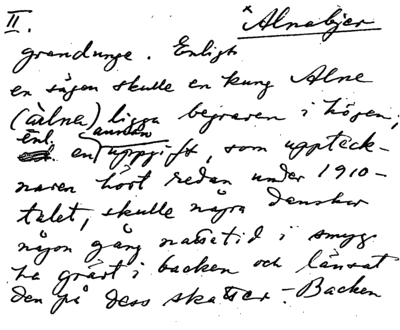 II. × Alnabjer
grandunge. Enligt
en sägen skulle en kung Alne
(àlne) ligga begraven i högen;
enl. en annan uppgift, som uppteck-
naren hört redan under 1910-
talet, skulle några danskar
någon gång nattetid i smyg
ha grävt i backen och länsat
den på dess skatter. - Backen